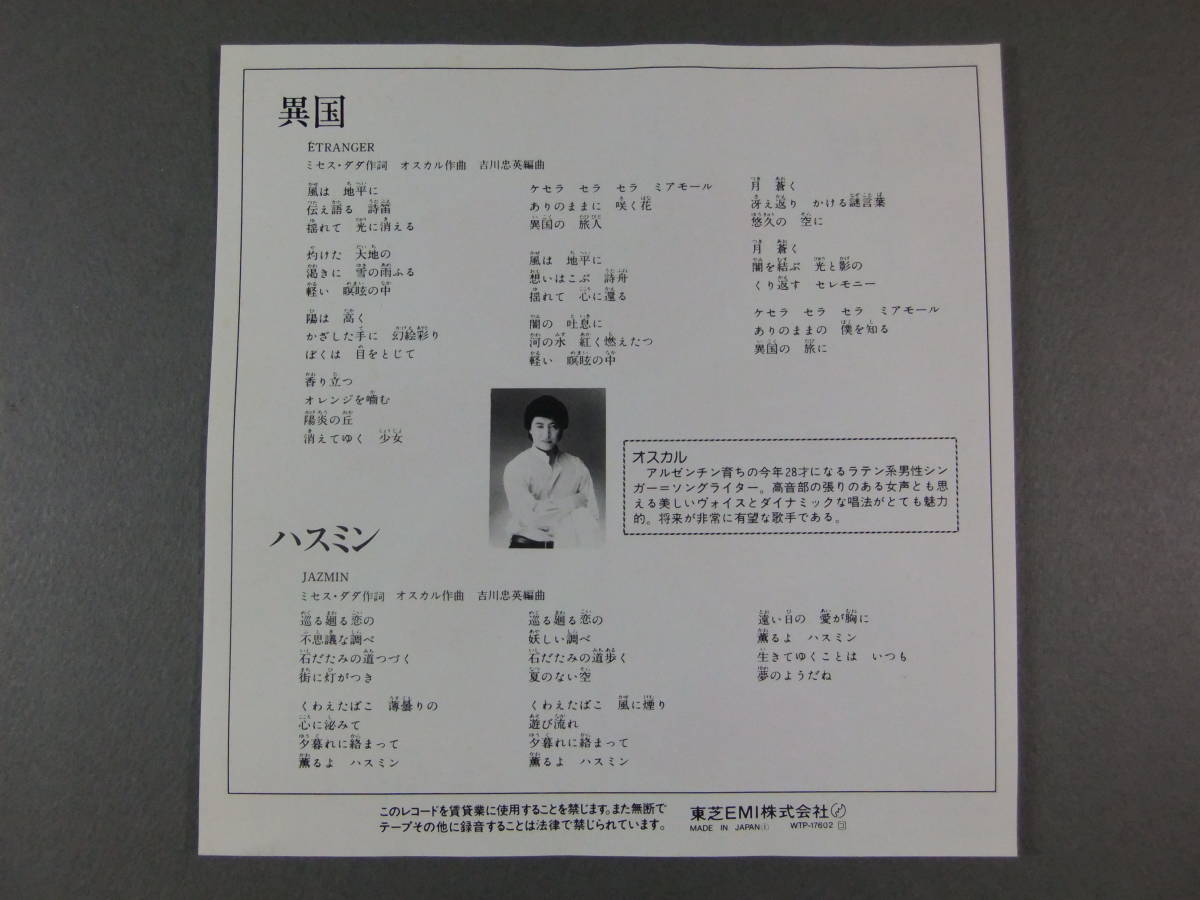 異国
ÉTRANGER
ミセス・ダダ作詞 オスカル作曲 吉川忠英編曲
風は 地平に
伝え語る 詩笛
揺れて 光に消える
灼けた 大地の
渇きに 雪の雨ふる
軽い 瞑眩の中
陽は 高く
かざした手に 幻絵彩り
ぼくは 目をとじて
香り立つ
オレンジを噛む
陽炎の丘
消えてゆく 少女
ケセラ セラ セラ ミアモール
ありのままに 咲く花
異国の 旅人
風は 地平に
想いはこぶ 詩舟
揺れて 心に還る
闇の 吐息に
河の水 紅く燃えたつ
軽い 瞑眩の中
月 蒼く
冴え返り かける謎言葉
悠久の 空に
月 蒼く
闇を結ぶ 光と影の
くり返す セレモニー
ケセラ セラ セラ ミアモール
ありのままの 僕を知る
異国の 旅に
オスカル
アルゼンチン育ちの今年28才になるラテン系男性シン
ガー=ソングライター。高音部の張りのある女声とも思
える美しいヴォイスとダイナミックな唱法がとても魅力
的。将来が非常に有望な歌手である。
ハスミン
JAZMIN
ミセス・ダダ作詞 オスカル作曲 吉川忠英編曲
巡る廻る恋の
不思議な調べ
石だたみの道つづく
街に灯がつき
くわえたばこ 薄曇りの
心に泌みて
夕暮れに絡まって
薫るよ ハスミン
巡る廻る恋の
妖しい調べ
石だたみの道歩く
夏のない空
くわえたばこ 風に煙り
遊び流れ
夕暮れに絡まって
薫るよ ハスミン
遠い日の 愛が胸に
薫るよ ハスミン
生きてゆくことは いつも
夢のようだね
このレコードを賃貸業に使用することを禁じます。また無断で
テープその他に録音することは法律で禁じられています。
東芝EMI株式会社
MADE IN JAPAN WTP-17602